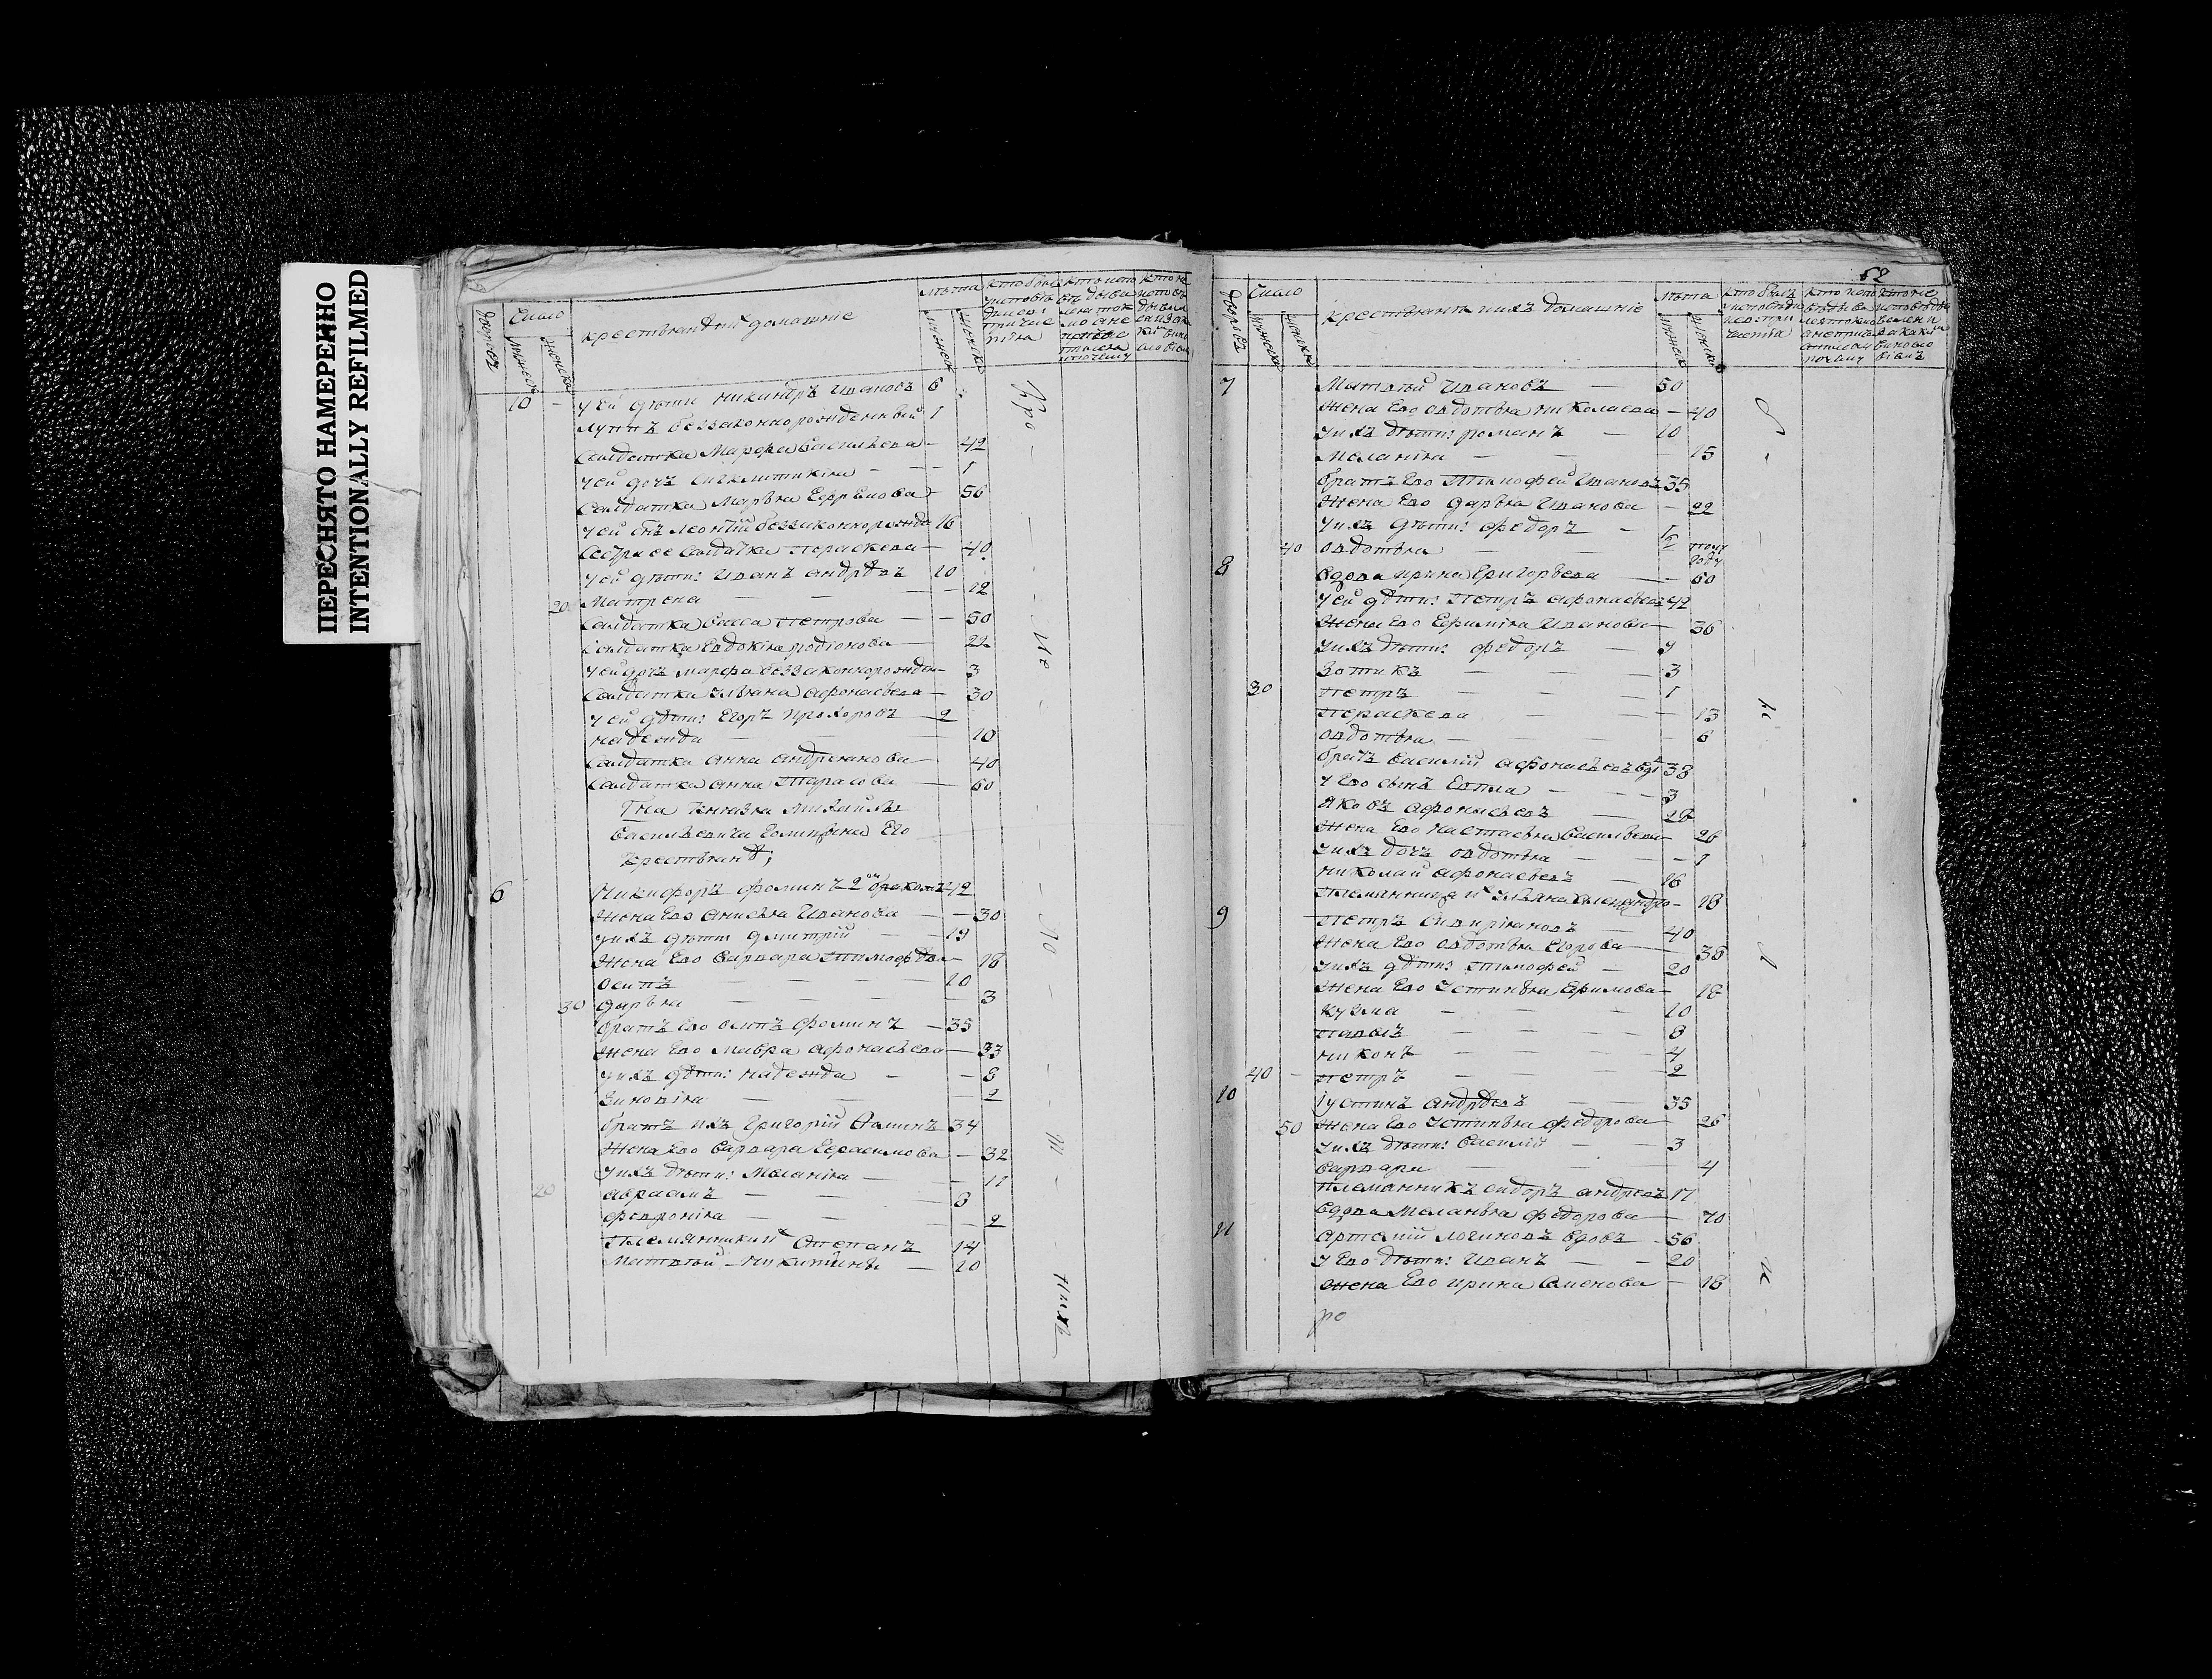 ПЕРЕСНЯТО НАМЕРЕННО
INTENTIONALLY REFILMED
число
крестьяне и их домашніе
лѣта
мужеска
женска
10 - у ей дѣти никандръ Ивановъ 6
Луппъ беззаконнорожденный 1
Салдатка Марфа Васильева - 42
у ей дочь - - 1
Салдатка Марья Ефремова - 56
у ей сынъ леонтій беззаконнорожде 16
Сестра ее Салдатка Параскева - 40
у ей дѣти: Иванъ андрѣевъ 10
20 Матрена - - - 12
Салдатка Петрова - 50
Салдатка Евдокіа родіонова - 22
у ей дочь марфа беззаконнорожден - 3
Салдатка Ульяна афонасьева - 30
у ей дѣти: Егоръ Прохоровъ 2
надежда - - 10
Салдатка Анна андреянова - 40
Салдатка анна Тарасова - 60
Гна Князя Михайлы
Васильевича Голицына Его
крестьянѣ;
6 Никифоръ фоминъ 2 бракомъ 42
жена Ево Анисья Иванова - 30
у ихъ дѣти дмитрій - 19
жена Ево Варвара Тимофѣева - 18
осипъ - - 10
30 дарья - - 3
братъ Ево осипъ фоминъ - 35
жена Ево Мавра афонасьева - 33
у ихъ дѣти: надежда - 8
Зиновіа - - 2
братъ ихъ Григорій Фоминъ 34
жена Ево Варвара Герасимова - 32
у ихъ дѣти: Меланіа - 11
20 авраамъ - - 8
февроніа - - 2
Племянники Степанъ 14
Матвѣй - никитины - 10
52
число
крестьяна и ихъ домашніе
лѣта
мужеска
женска
7 Матвѣй Ивановъ - 50
жена Ево овдотья николаева - 40
у ихъ дѣти: романъ - 10
Меланіа - - 15
братъ Ево Тимофей Ивановъ 35
жена Ево дарья Иванова - 22
у ихъ дѣти: федоръ -
40 овдотья - - году
8 вдова ирина Григорьева - 60
у ей дѣти: Петръ афонасьевъ 42
жена Ево Ефиміа Иванова - 36
у ихъ дѣти: федоръ - 9
Зотикъ - - 3
30 Петръ - - 1
Параскева - - 13
овдотья - - 6
братъ василій афонасьевъ вдв 38
у Ево сынъ Евтпла - 3
Яковъ афонасьевъ - 28
жена Ево настасья Васильева - 26
у ихъ дочь овдотья - 1
николай афонасьевъ - 16
Племянница ихъ Ульяна - 18
9 Петръ - 40
жена Ево овдотья Егорова - 38
у ихъ дѣти: тимофей - 20
жена Ево Устинья Ефимова - 18
кузма - - 10
павелъ - - 8
никонъ - - 4
40 - петръ - - 2
10 Іустинъ андрѣевъ - 35
50 жена Ево Устинья федорова - 26
у ихъ дѣти: василій - 3
варвара - - 4
Племянникъ сидоръ андреевъ 17
вдова Меланья федорова - 70
11 Артемій логиновъ вдовъ - 56
у Ево дѣти: Иванъ - 20
жена Ево ирина Семенова - 18